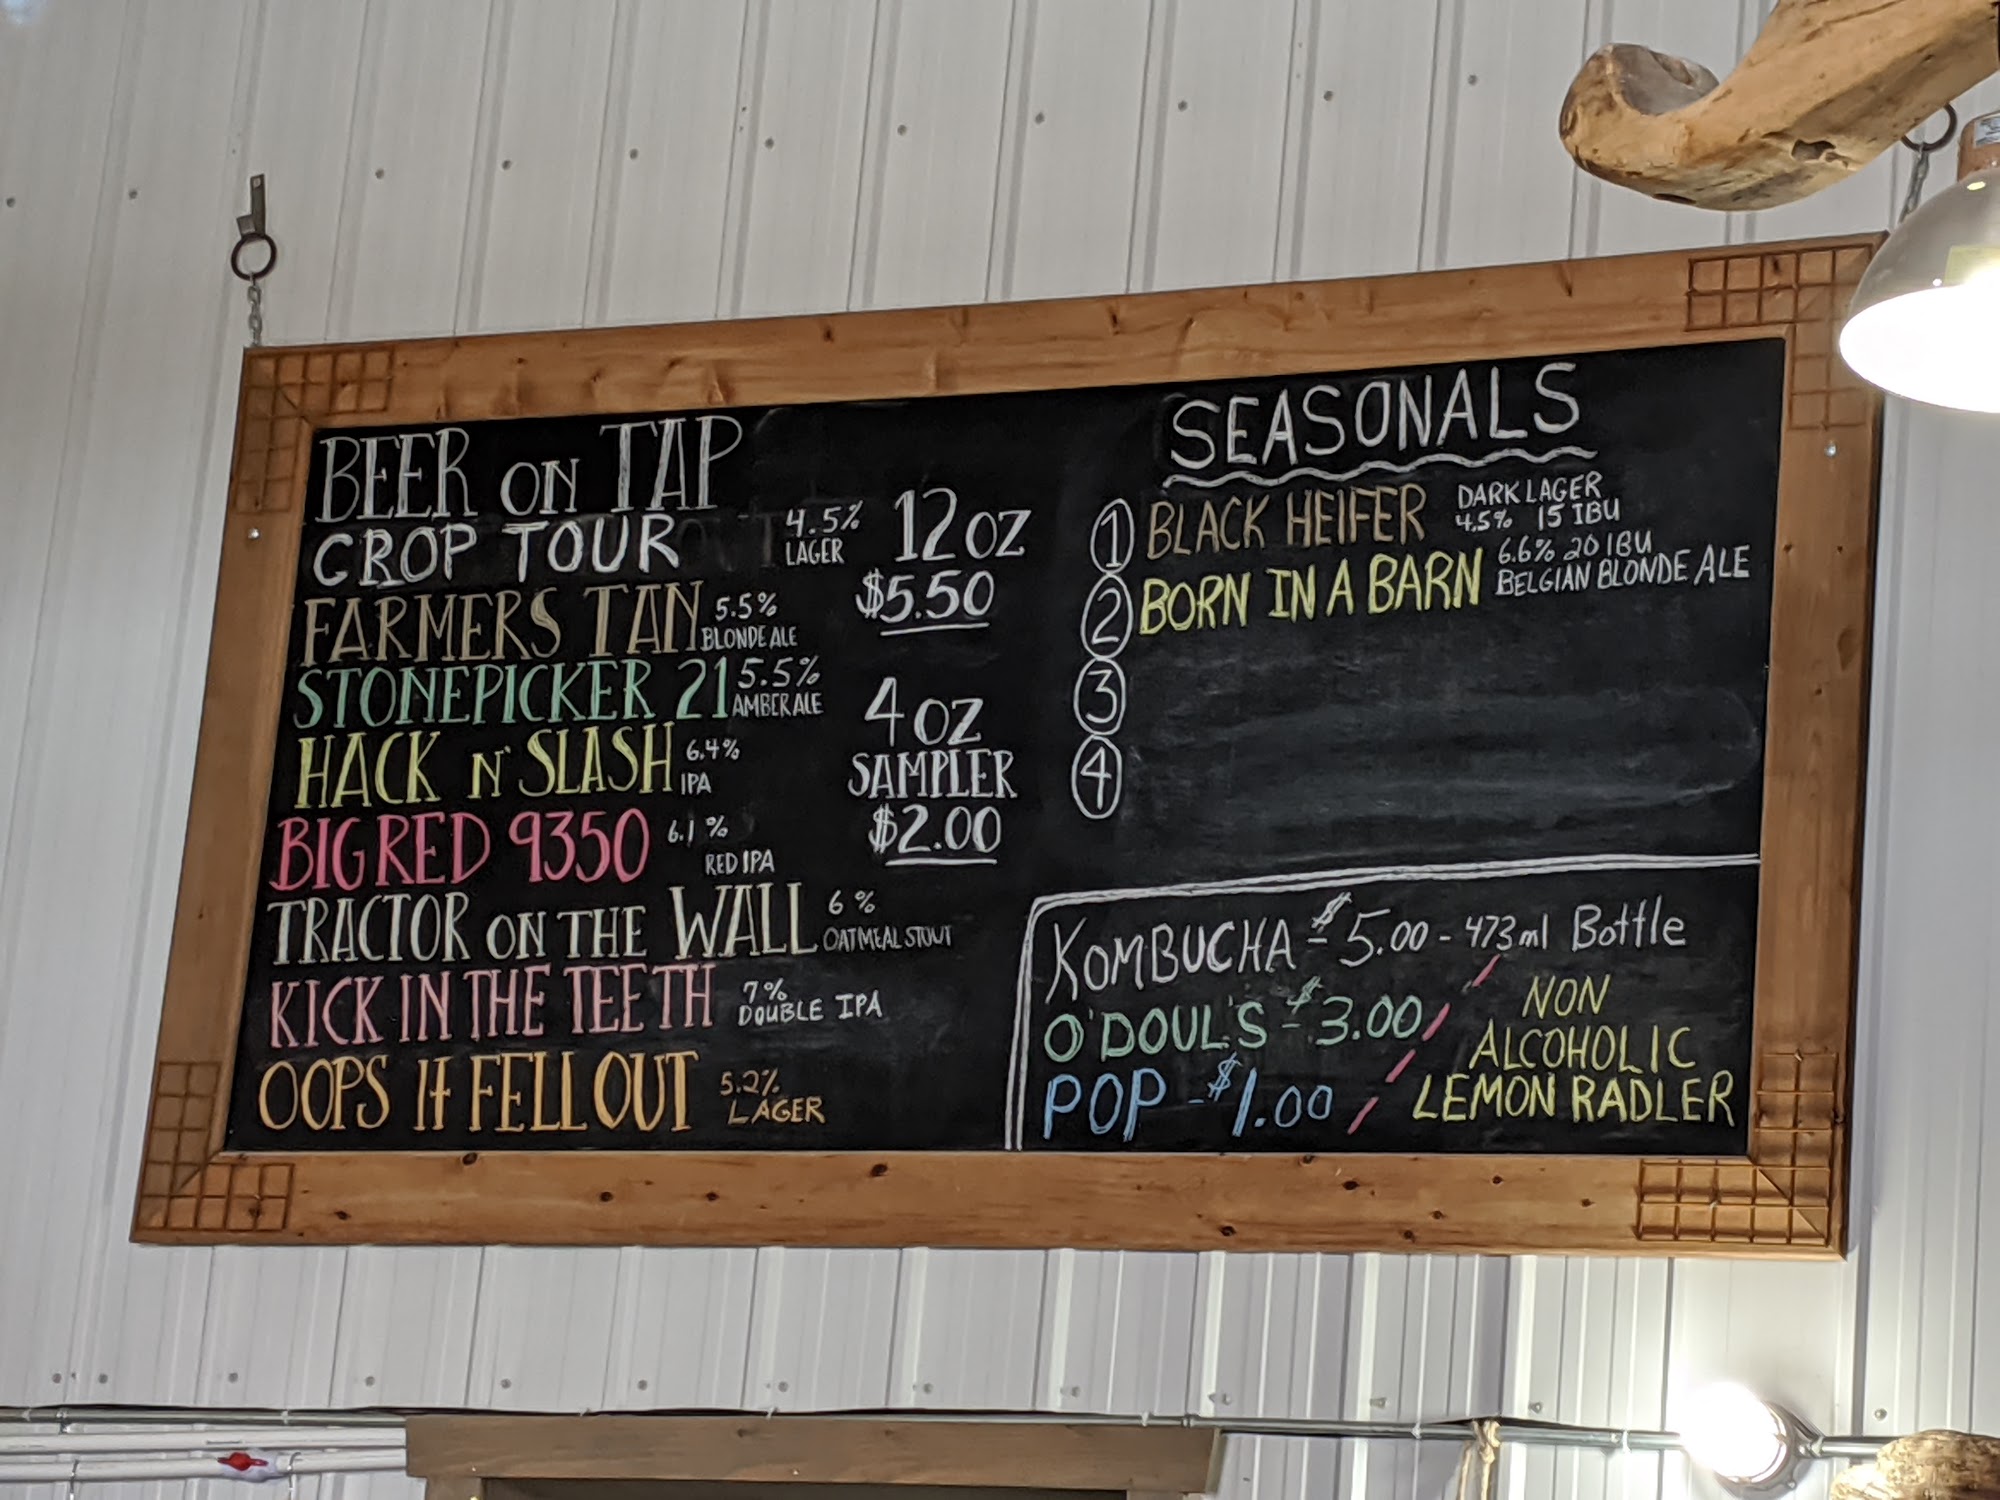 BEER ON TAP
CROP TOUR 4.5% LAGER
FARMERS TAN 5.5% BLONDE ALE
STONEPICKER 21 5.5% AMBER ALE
HACK N' SLASH 6.4% IPA
BIG RED 9350 6.1% RED IPA
TRACTOR ON THE WALL 6% OATMEAL STOUT
KICK IN THE TEETH 7% DOUBLE IPA
OOPS IT FELL OUT 5.2% LAGER
12 OZ
$5.50
4 OZ
SAMPLER
$2.00
SEASONALS
1 BLACK HEIFER DARK LAGER 4.5% 15 IBU
2 BORN IN A BARN 6.6% 20 IBU BELGIAN BLONDE ALE
3
4
KOMBUCHA - $5.00 - 473ml Bottle
O'DOUL'S - $3.00
POP - $1.00
NON
ALCOHOLIC
LEMON RADLER